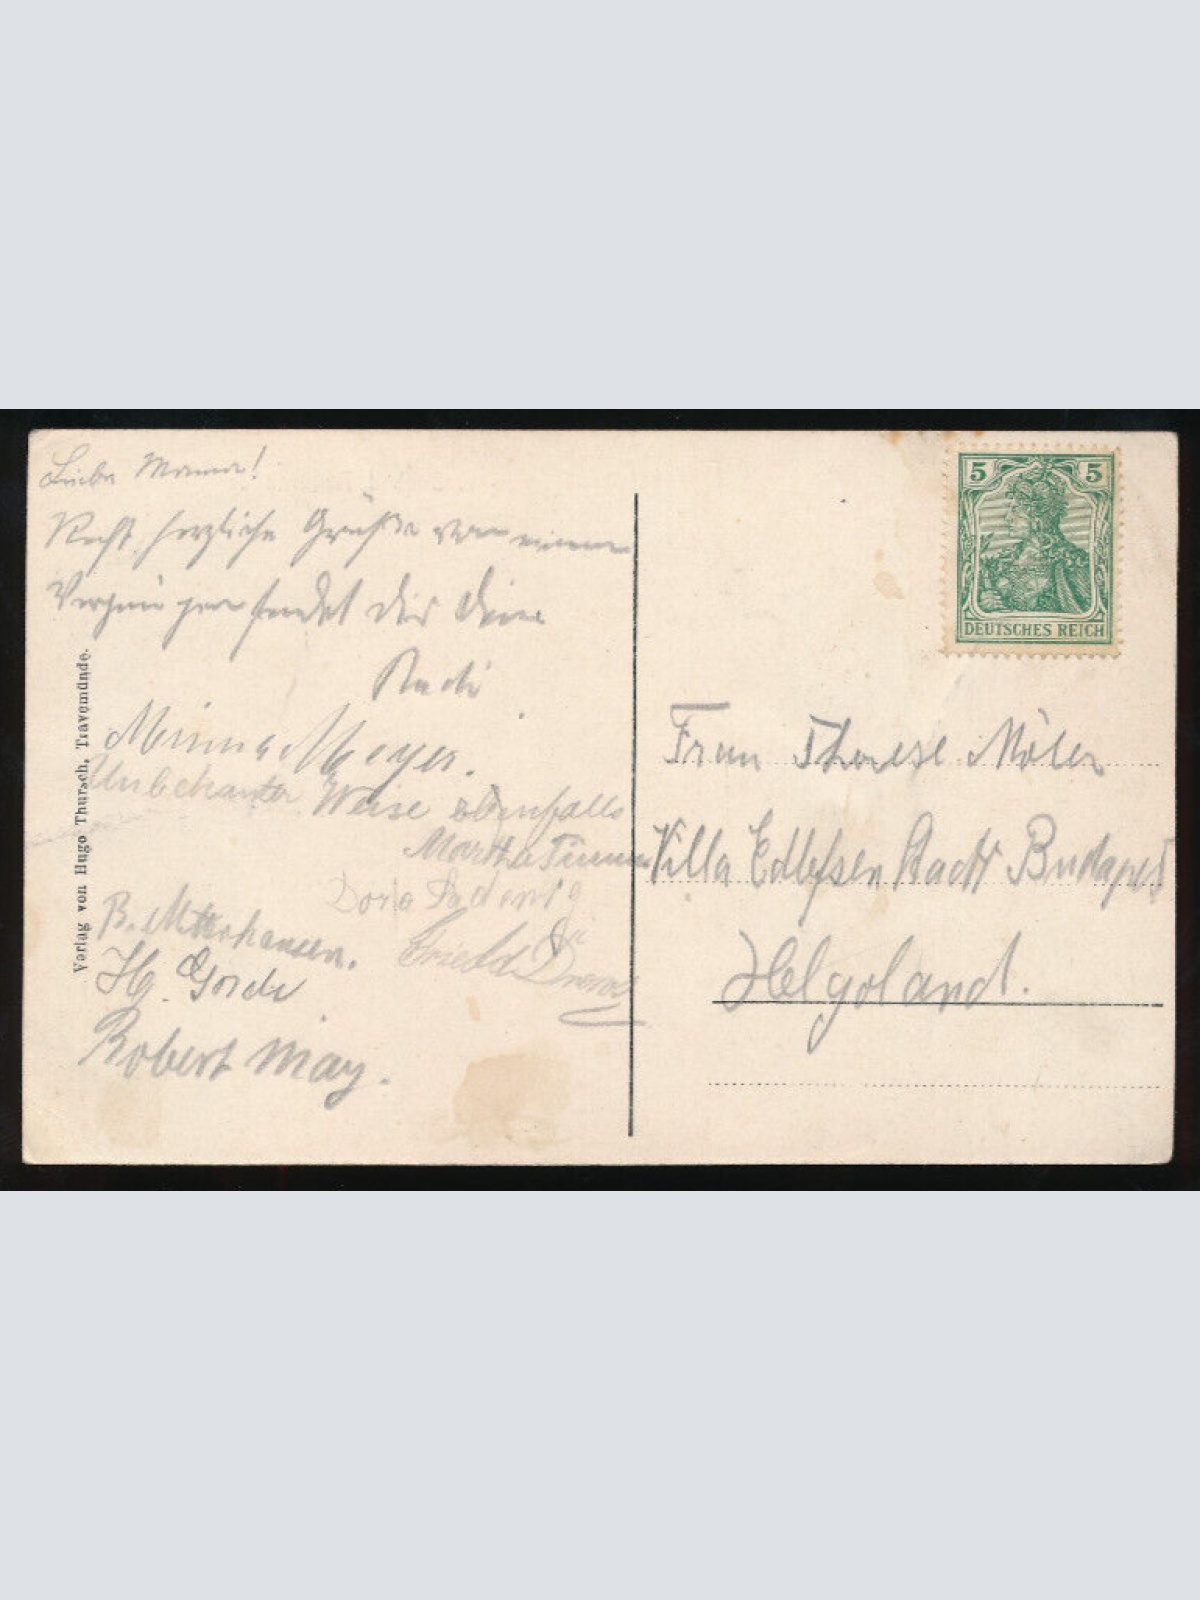 Liebe Mama!
Recht herzliche Grüße von einem
Vergnügen sendet dir Deine
Minna Meyer.
Unbekanter Weise ebenfalls
Martha
Dora
B.
Hg.
Robert May.
Verlag von Hugo Thursch, Travemünde.
5 5
DEUTSCHES REICH
Frau Therese Möler
Villa Edlefsen Stadt Budapest
Helgoland.